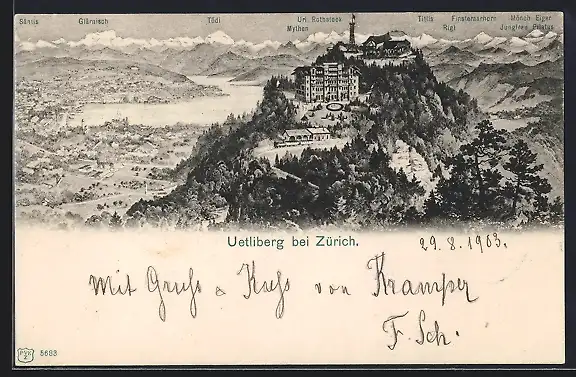 Säntis Glärnisch Tödi Uri Rothstock Titlis Finsteraarhorn Mönch Eiger
Mythen Rigi Jungfrau Pilatus
Uetliberg bei Zürich.
29.8.1903.
Mit Gruss & Kuss von Kramper
F. Sch.
5683